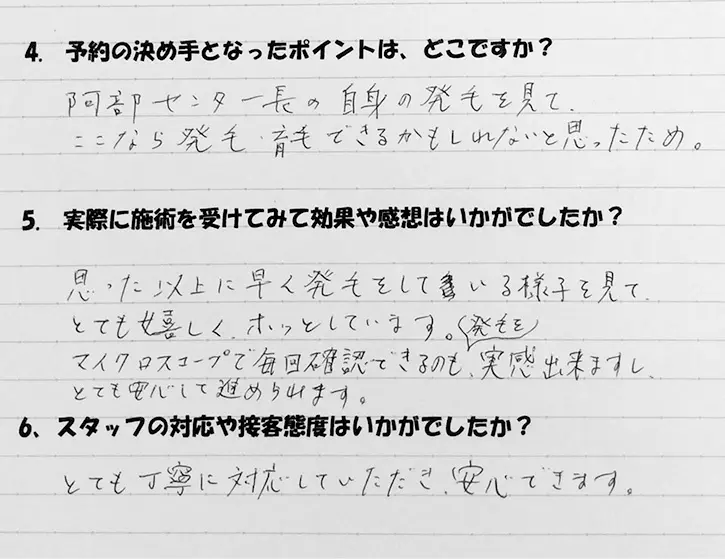 4. 予約の決め手となったポイントは、どこですか？
阿部センター長の自身の発毛を見て、
ここなら発毛、育毛できるかもしれないと思ったため。
5. 実際に施術を受けてみて効果や感想はいかがでしたか？
思った以上に早く発毛をしている様子を見て、
とても嬉しく、ホッとしています。(発毛を)
マイクロスコープで毎回確認できるのも、実感出来ますし、
とても安心して進められます。
6、スタッフの対応や接客態度はいかがでしたか？
とても丁寧に対応していただき、安心できます。